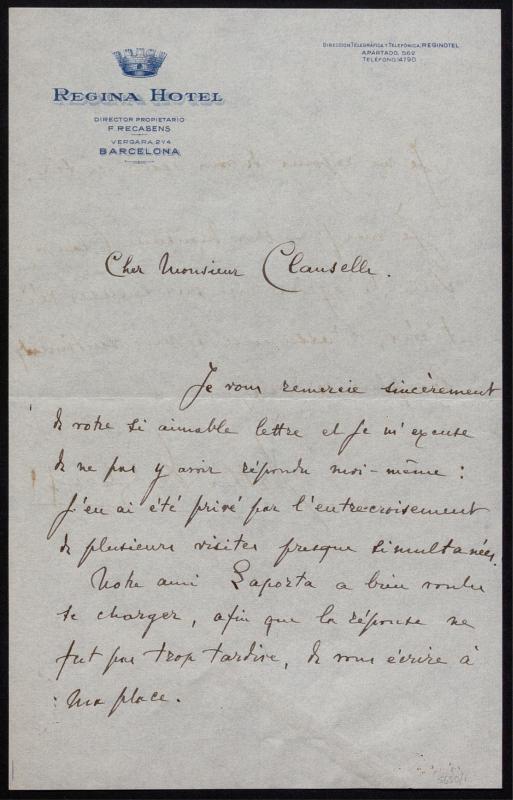 REGINA HOTEL
DIRECTOR PROPIETARIO
F. RECASENS
VERGARA, 2 Y 4
BARCELONA
DIRECCION TELEGRÁFICA Y TELEFÓNICA: REGINOTEL
APARTADO, 562
TELÉFONO: 14790
Cher Monsieur Clauselle.
Je vous remercie sincèrement
de votre si aimable lettre et je m'excuse
de ne pas y avoir répondu moi-même :
j'en ai été privé par l'entrecroisement
de plusieurs visites presque simultanées.
Notre ami Laporta a bien voulu
se charger, afin que la réponse ne
fut pas trop tardive, de vous écrire à
ma place.
5650/1